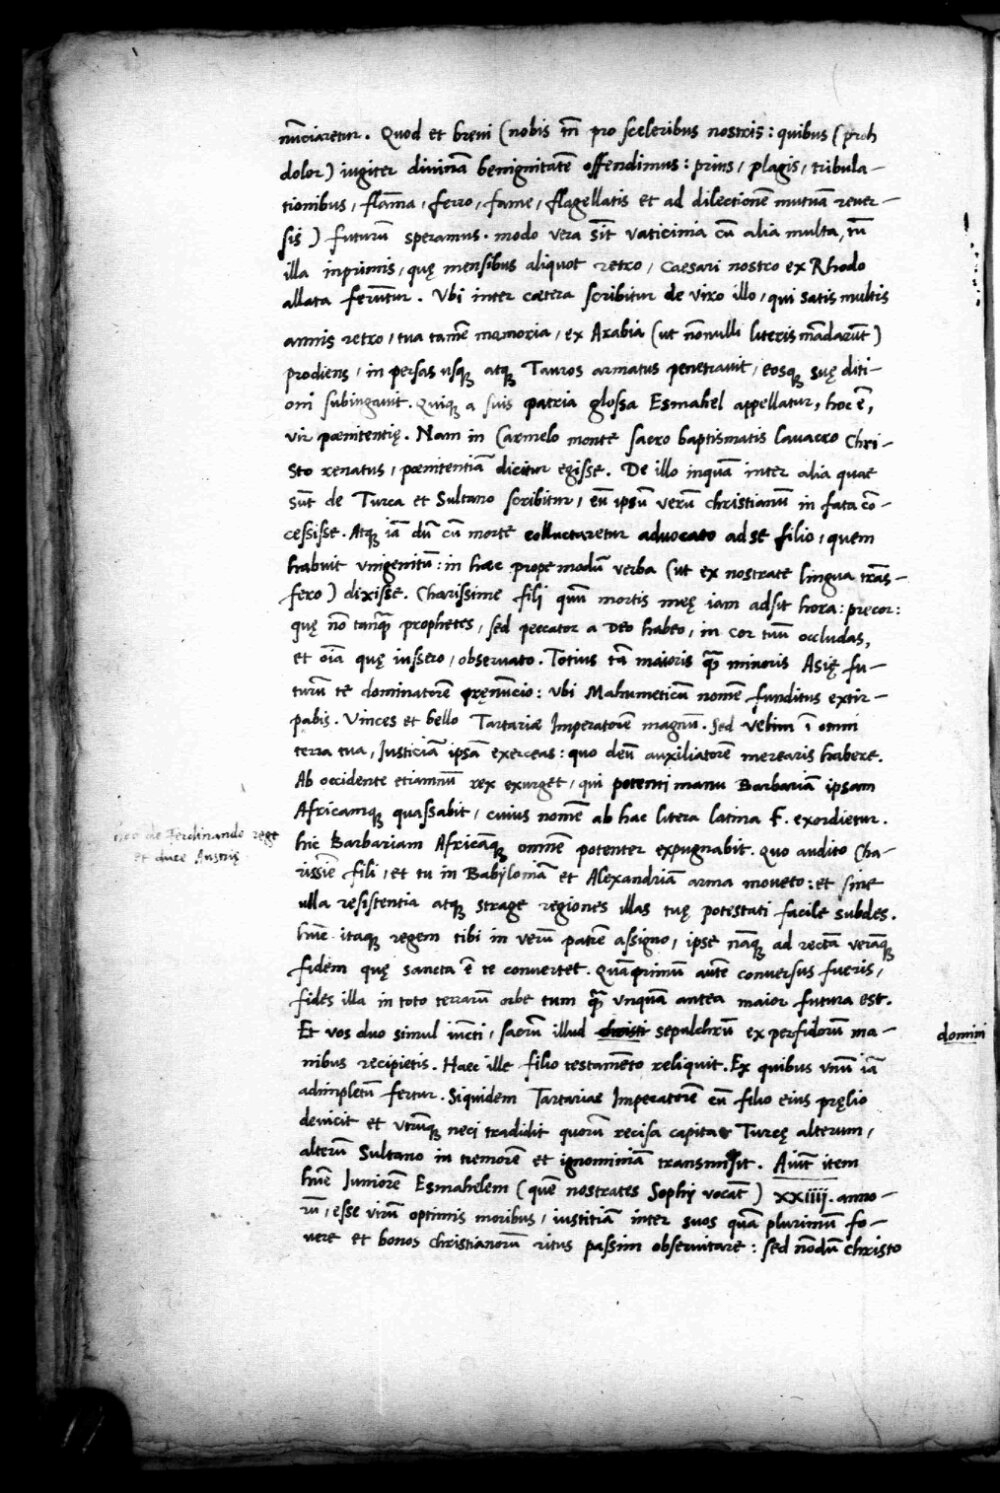 nūciaretur. Quod et breui (nobis tñ pro sceleribus nostris: quibus (proh
dolor) iugiter diuinā benignitatē offendimus: prius, plagis, tribula-
tionibus, flāma, ferro, fame, flagellatis et ad dilectionē mutuā reuer-
sis) futurū speramus. modo vera sīt vaticinia cū alia multa, tū
illa inprimis, quę mensibus aliquot retro, Caesari nostro ex Rhodo
allata ferūtur. Vbi inter cætera scribitur de viro illo, qui satis multis
annis retro, tua tamē memoria, ex Arabia (ut nōnulli literis mādarūt)
prodiens, in persas usqꝫ atqꝫ Tauros armatus penetrauit, eosqꝫ suę diti-
oni subiugauit. Quiqꝫ a suis patria glossa Esmahel appellatur, hoc ē,
vir pœnitentię. Nam in Carmelo monte sacro baptismatis lauacro Chri-
sto renatus, pœnitentiā dicitur egisse. De illo inquā inter alia quae
sūt de Turca et Sultano scribitur, eū ipsū verū christianū in fata cō-
cessisse. Atqꝫ iā dū cū morte colluctaretur aduocato ad se filio, quem
habuit vnigenitū: in haec propemodū verba (ut ex nostrate lingua trās-
fero) dixisse. Charissime fili quū mortis meę iam adsit hora: precor:
quę nō tanq̄ prophetes, sed peccator a Deo habeo, in cor tuū occludas,
et oīa quę iussero, obseruato. Totius tā maioris q̄ minoris Asię fu-
turū te dominatorē pręnūcio: vbi Mahumeticū nomē funditus extir-
pabis. Vinces et bello Tartariæ Imperatorē magnū. Sed velim ī omni
terra tua, Justiciā ipsā exerceas: quo deū auxiliatorē merearis habere.
Ab occidente etiamnū rex exurget, qui potenti manu Barbariā ipsam
Africamqꝫ quassabit, cuius nomē ab hac litera latina F. exordietur.
hic Barbariam Africāqꝫ omnē potenter expugnabit. Quo audito Cha-
rissie fili, et tu in Babyloniā et Alexandriā arma moueto: et sine
ulla resistentia atqꝫ strage regiones illas tuę potestati facile subdes.
hūc itaqꝫ regem tibi in verū patrē assigno, ipse nāqꝫ ad rectā verāqꝫ
fidem quę sancta ē te conuertet. Quāprimū autē conuersus fueris,
fides illa in toto terrarū orbe tum q̄ vnquā antea maior futura est.
Et vos duo simul iūcti, sacrū illud christi sepulchrū ex perfidorū ma-
domini
nibus recipietis. Haec ille filio testamēto reliquit. Ex quibus vnū iā
adimpletū fertur. Siquidem Tartariae Imperatorē cū filio eius pręlio
deuicit et vtrūqꝫ neci tradidit quorū recisa capita Turcę alterum,
alterū Sultano in tremorē et ignominiā transmisit. Aiūt item
hūc Juniorē Esmahelem (quē nostrates Sophy vocāt) xxiiij. anno-
rū, esse virū optimis moribus, iustitiā inter suos quā plurimū fo-
uere et bonos christianorū ritus passim obseruitare: sed nōdū christo
hoc de Ferdinando rege
et duce Austrię